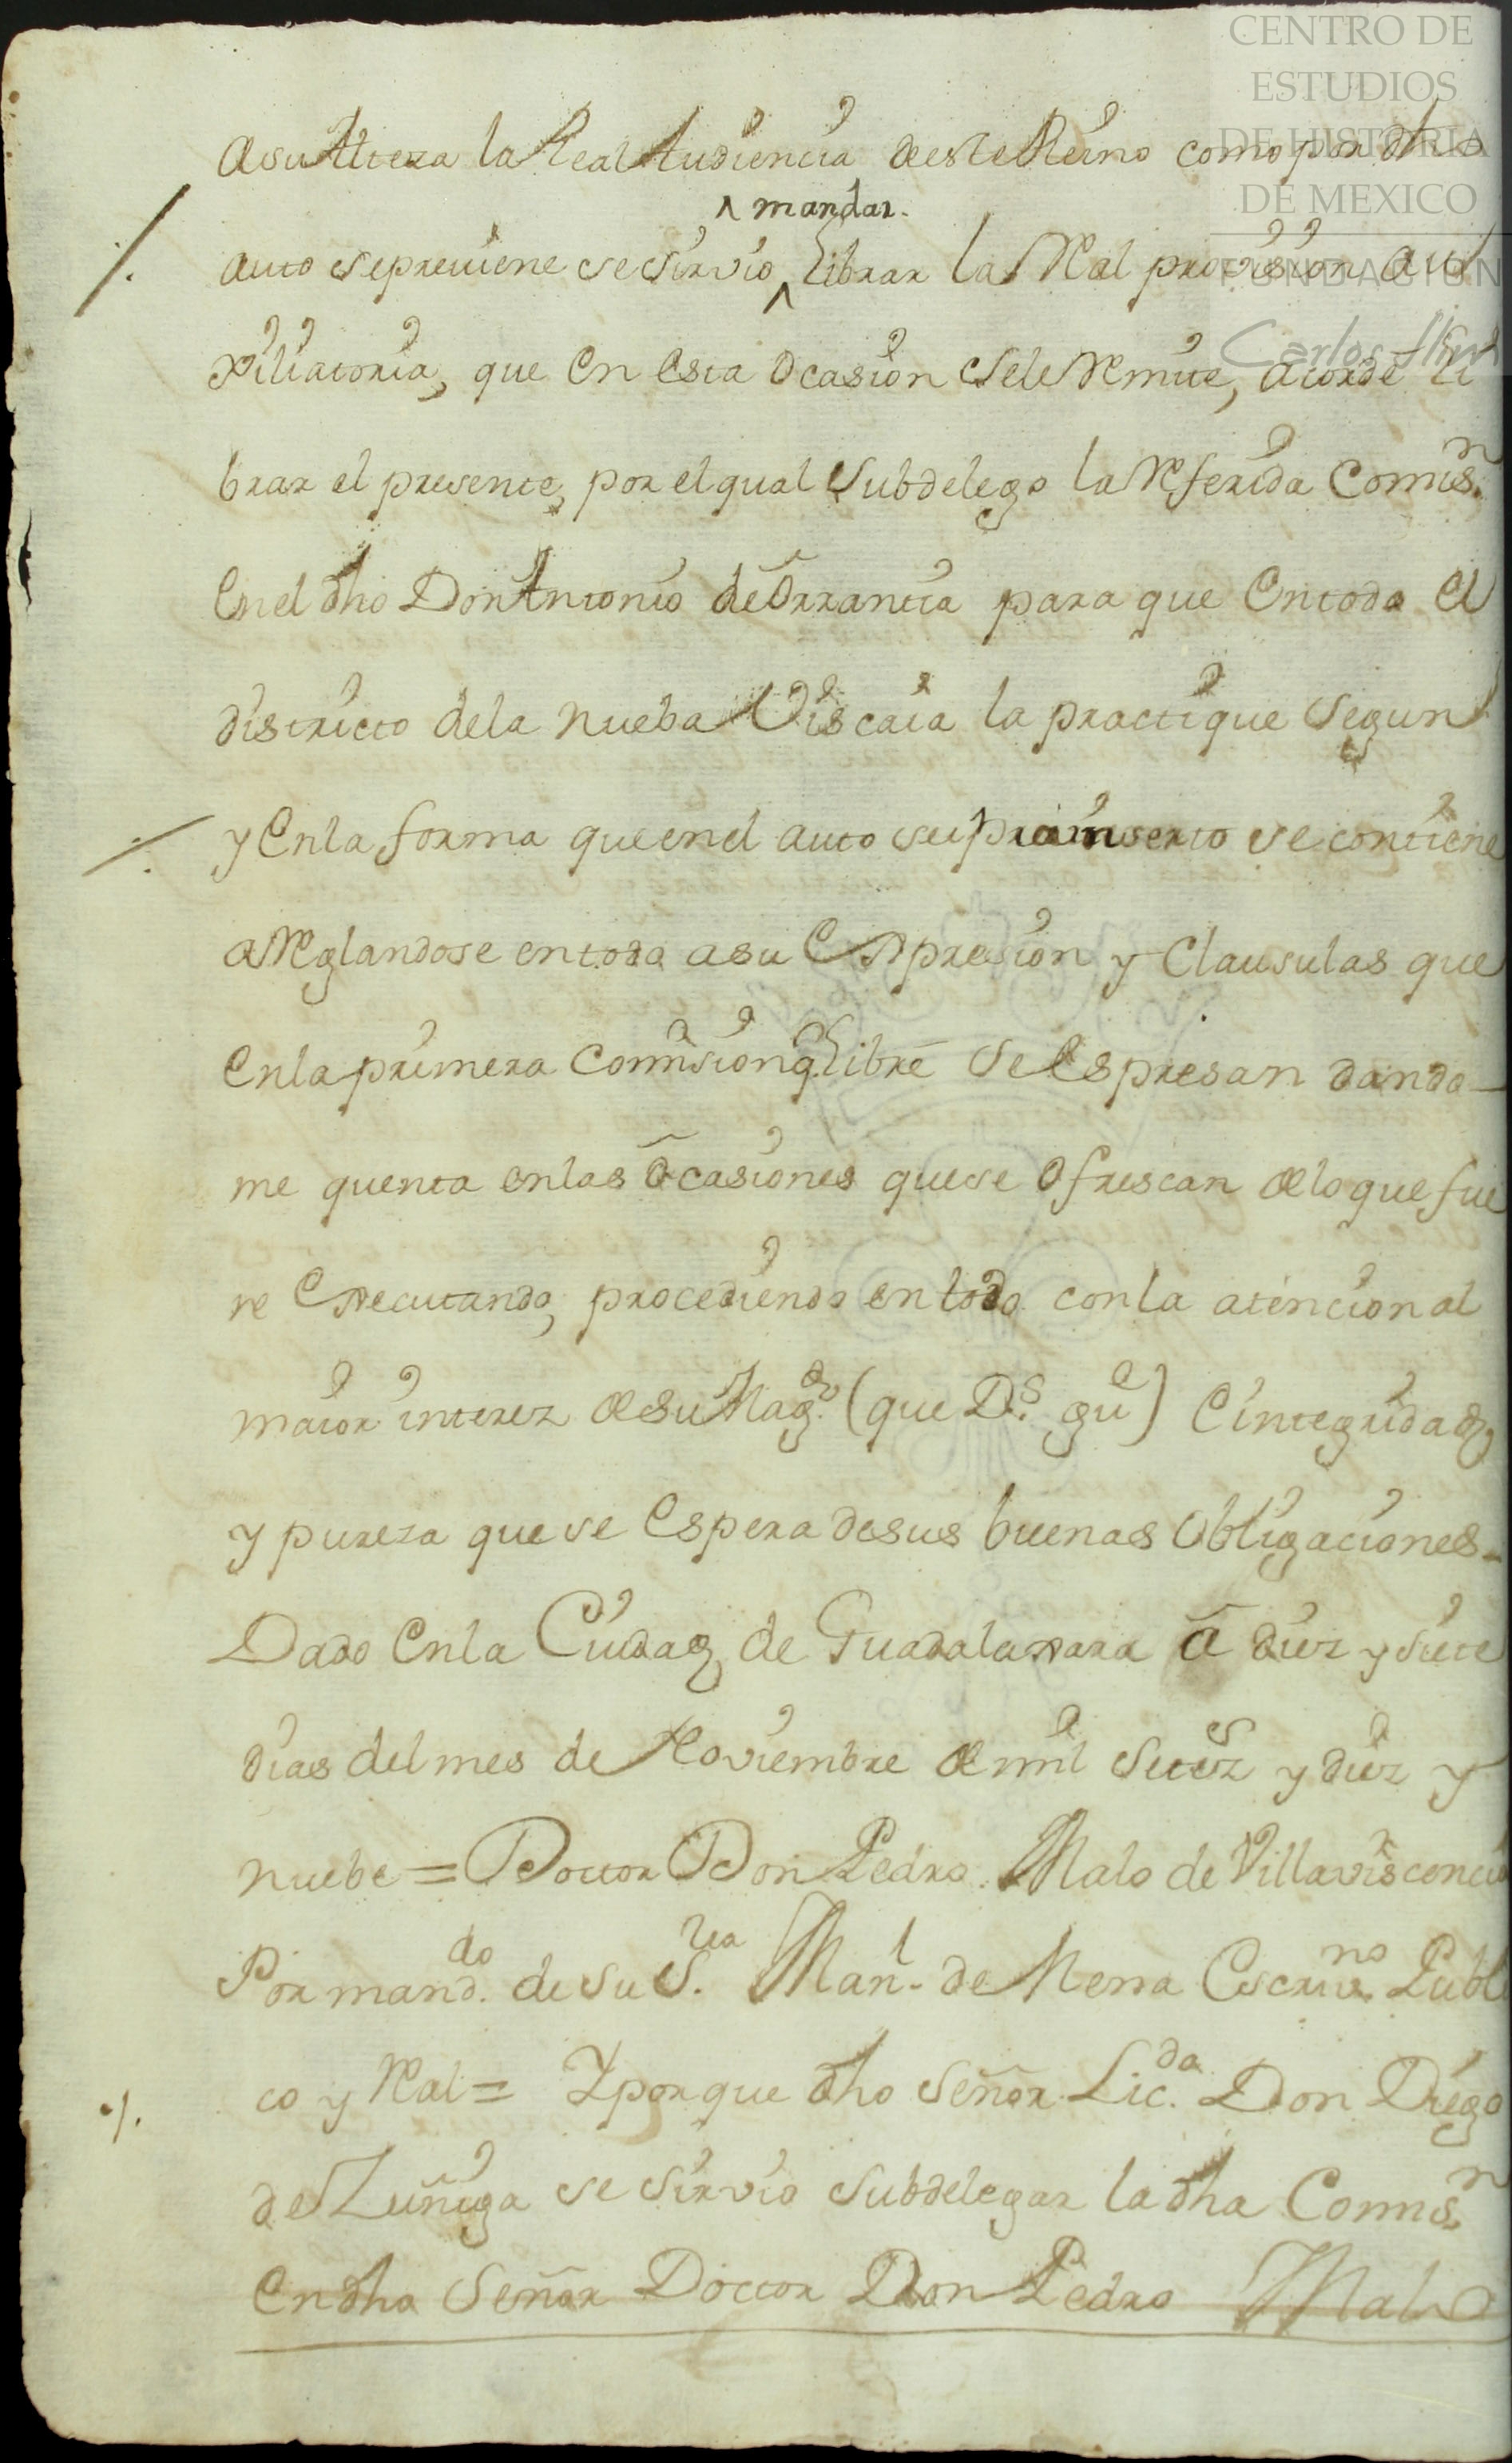 CENTRO DE
ESTUDIOS
DE HISTORIA
DE MEXICO
FUNDACIÓN
Carlos Slim
asu Alteza la Real Audiencia deste Reino como por dho
^ mandar.
auto sepreuiene se siruio ^ librar la Real provission aud
xiliatoria, que en esta ocasion sele Remite, acorde li
brar el presente, por el qual subdelego la Referida Comisn.
en el dho Don Antonio de Orrantia para que en todo el
districto dela nueba Viscaia la practique segun
y en la forma que en el auto supra inserto se contiene
arReglandose en todo asu Expresion y Clausulas que
en la primera comision q libre se espresan dando-
me quenta en las ocasiones que se ofrescan de lo que fue
re Executando, procediendo en todo con la atencion al
maior interez de su Magd. (que Ds. gue) e integridad,
y pureza que se espera de sus buenas obligaciones-
Dado en la Ciudad de Guadalaxara â diez y siete
dias del mes de Noviembre de mil setezs y diez y
nuebe = Doctor Don Pedro Malo de Villavisencio
Por manddo. de su S.ria Manl. de Mena Escriuno. Publi
co y Real = Y por que dho señor Licdo. Don Diego
de Zuñiga se siruio subdelegar la dha Comisn.
en dho Señor Doctor Don Pedro Malo